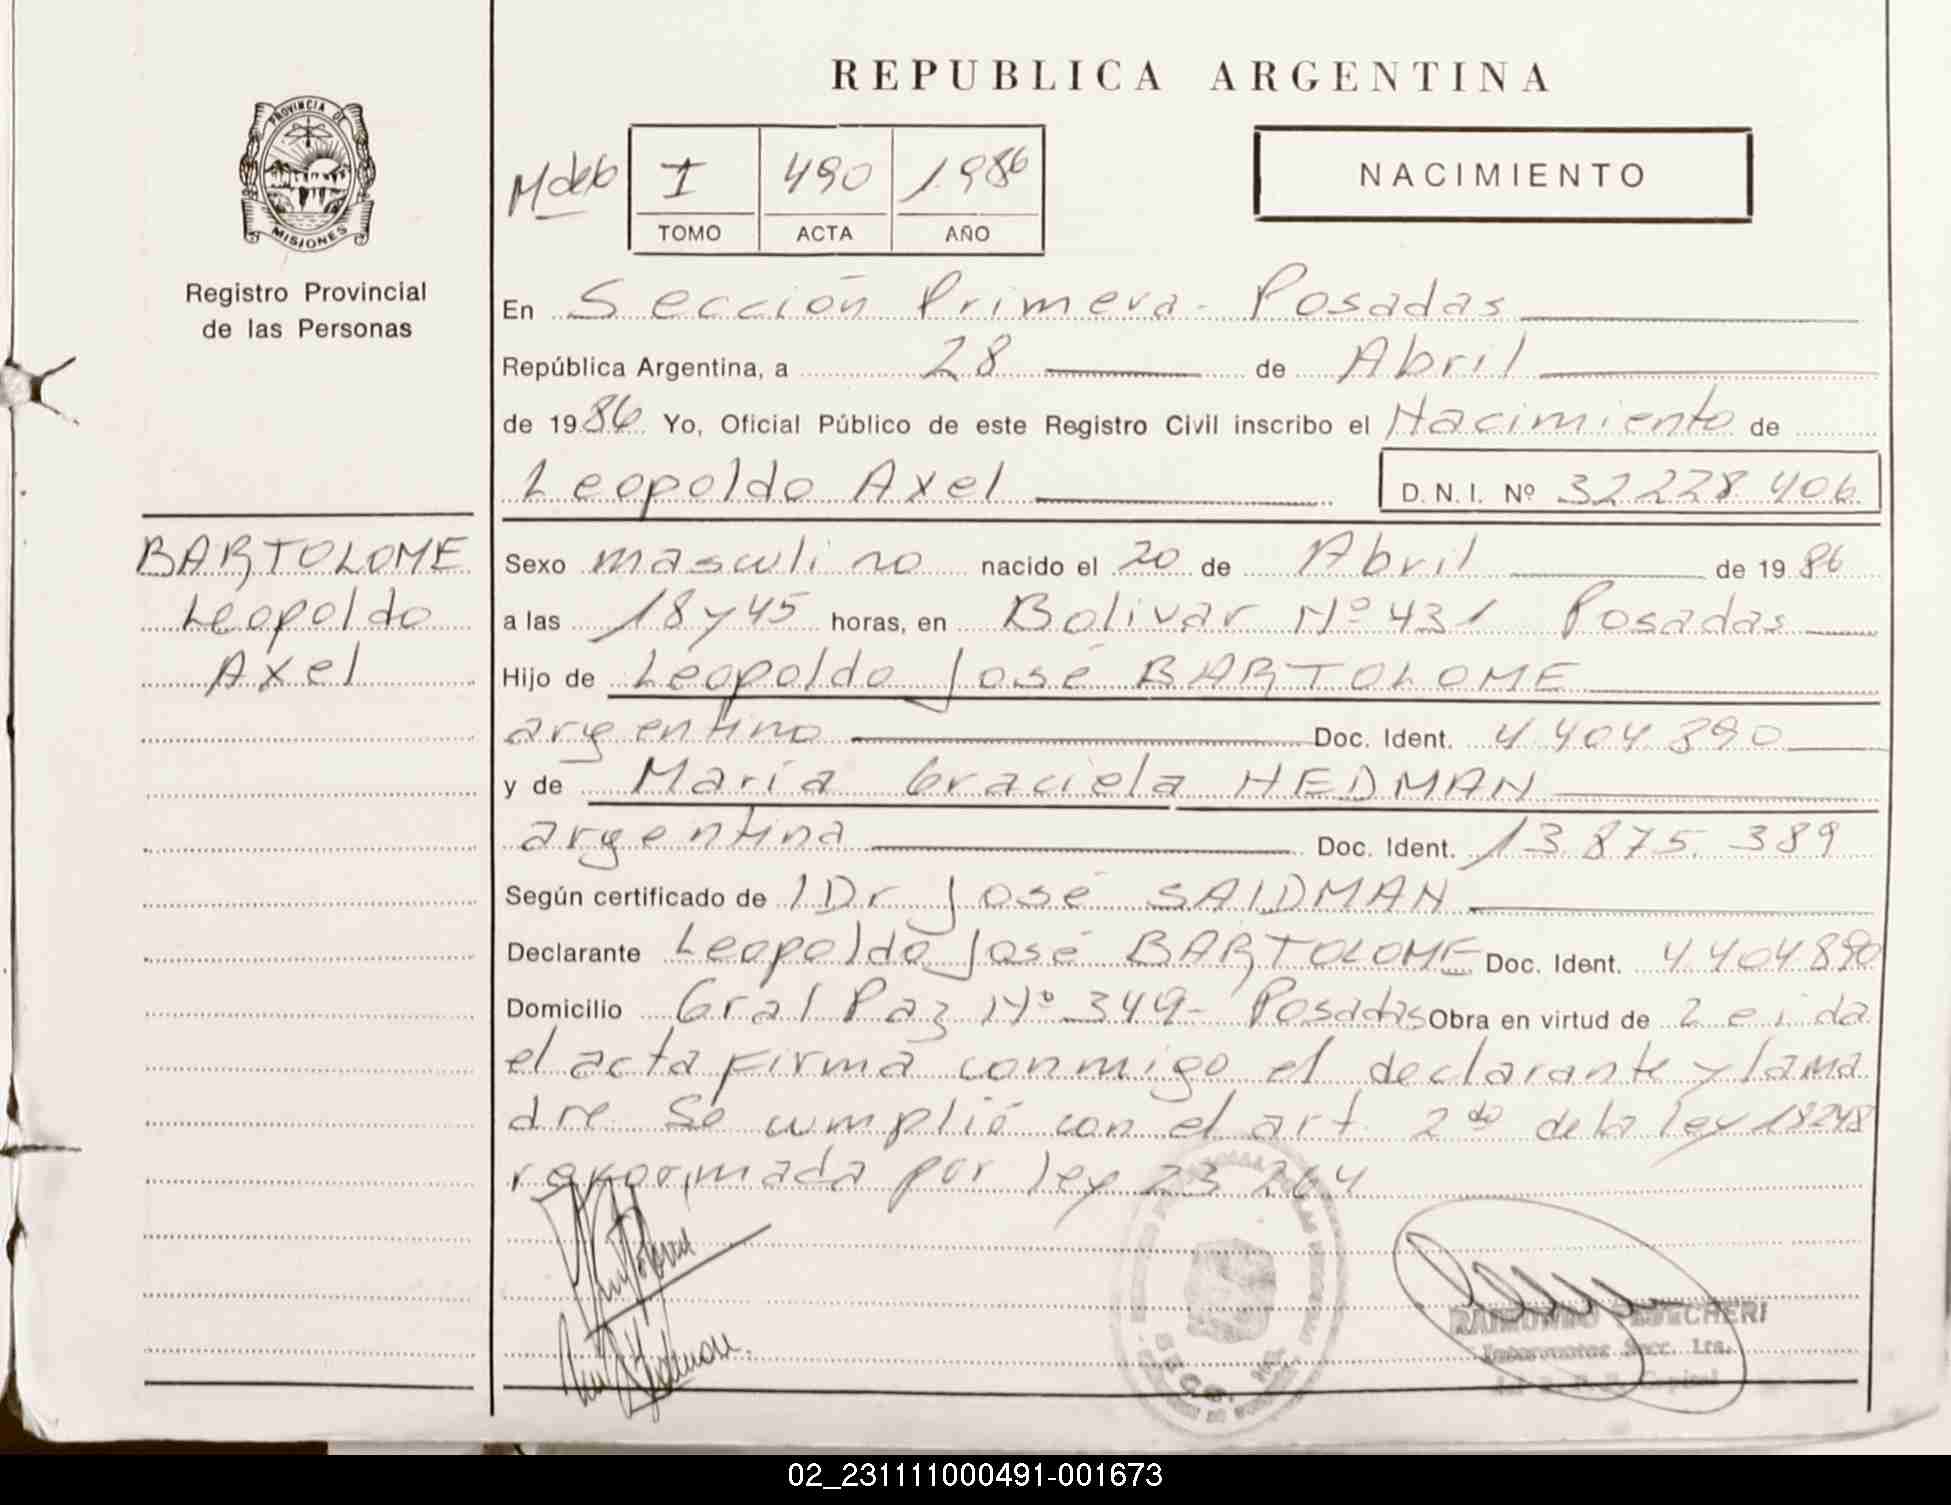 REPUBLICA ARGENTINA
PROVINCIA DE
MISIONES
Registro Provincial
de las Personas
I 490 1986
TOMO ACTA AÑO
NACIMIENTO
En Sección Primera - Posadas
República Argentina, a 28 de Abril
de 1986 Yo, Oficial Público de este Registro Civil inscribo el Nacimiento de
Leopoldo Axel D.N.I. Nº 32228.406
BARTOLOME
Leopoldo
Axel
Sexo masculino nacido el 20 de Abril de 1986
a las 18 y 45 horas, en Bolivar Nº 431 Posadas
Hijo de Leopoldo José BARTOLOME
argentino Doc. Ident. 4.404.890
y de María Graciela HEDMAN
argentina Doc. Ident. 13.875.389
Según certificado de Dr José SAIDMAN
Declarante Leopoldo José BARTOLOME Doc. Ident. 4.404890
Domicilio Gral Paz Nº 349- Posadas Obra en virtud de Leida
el acta firma conmigo el declarante y la ma
dre. Se cumplió con el art. 2do de la ley 18248
reformada por ley 23264
02_231111000491-001673